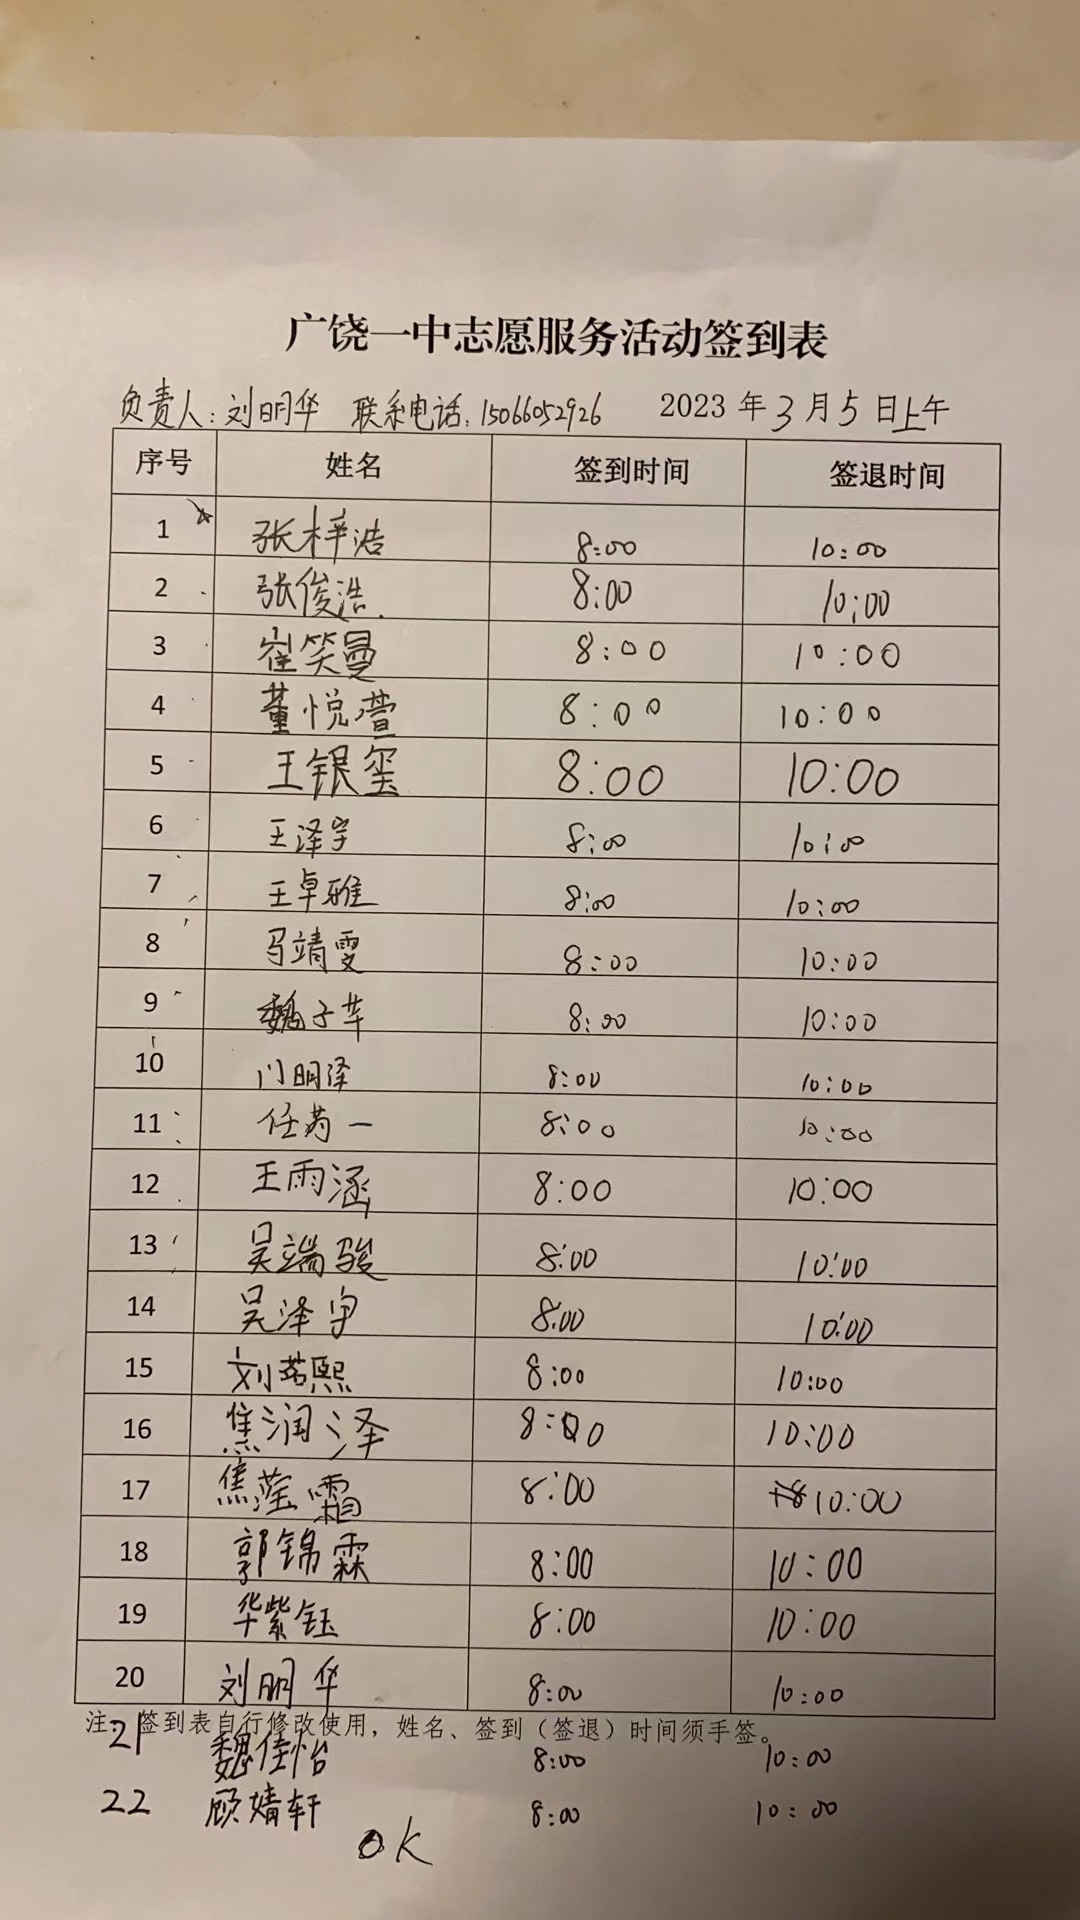 广饶一中志愿服务活动签到表
负责人:刘明华 联系电话:15066052926 2023年3月5日上午
序号 姓名 签到时间 签退时间
1 张梓浩 8:00 10:00
2 张俊浩 8:00 10:00
3 崔笑曼 8:00 10:00
4 董悦萱 8:00 10:00
5 王银玺 8:00 10:00
6 王泽宇 8:00 10:00
7 王卓雅 8:00 10:00
8 马靖雯 8:00 10:00
9 魏子芊 8:00 10:00
10 门明泽 8:00 10:00
11 任芮一 8:00 10:00
12 王雨涵 8:00 10:00
13 吴端骏 8:00 10:00
14 吴泽宇 8:00 10:00
15 刘若熙 8:00 10:00
16 焦润泽 8:00 10:00
17 焦滢霜 8:00 10:00
18 郭锦霖 8:00 10:00
19 华紫钰 8:00 10:00
20 刘明华 8:00 10:00
注:签到表自行修改使用,姓名、签到(签退)时间须手签。
21 魏佳怡 8:00 10:00
22 顾婧轩 8:00 10:00
OK